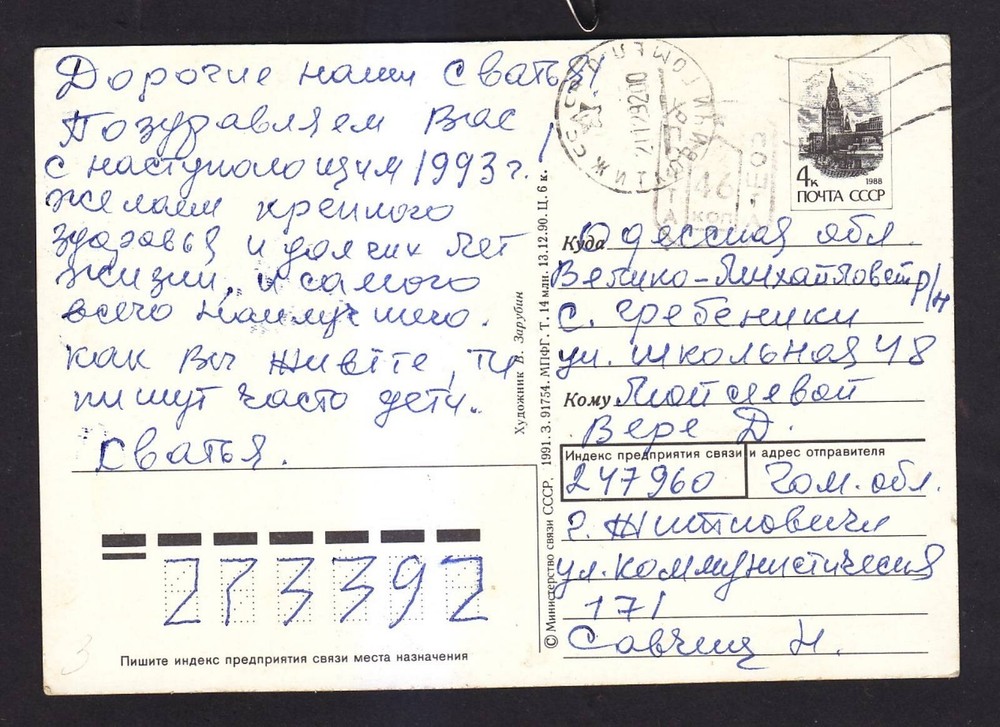 Дорогие наши Сватья!
Поздравляем Вас
с наступающим 1993 г.
желаем крепкого
здоровья и долгих лет
жизни, и самого
всего наилучшего.
как Вы живёте,
пишут часто дети..
Сватья.
Пишите индекс предприятия связи места назначения
273392
Художник В. Зарубин
© Министерство связи СССР, 1991. З. 91754. МПФГ. Т. 14 млн. 13.12.90. Ц. 6 к.
46
КОП
4к
1988
ПОЧТА СССР
Куда Одесская обл.
Велико-Михайловский р/н
с. Гребеники
ул. Школьная 48
Кому Мойсеевой
Вере Д.
Индекс предприятия связи и адрес отправителя
247960 Гом. обл.
г. Житковичи
ул. Коммунистическая
171
Савчиц Н.